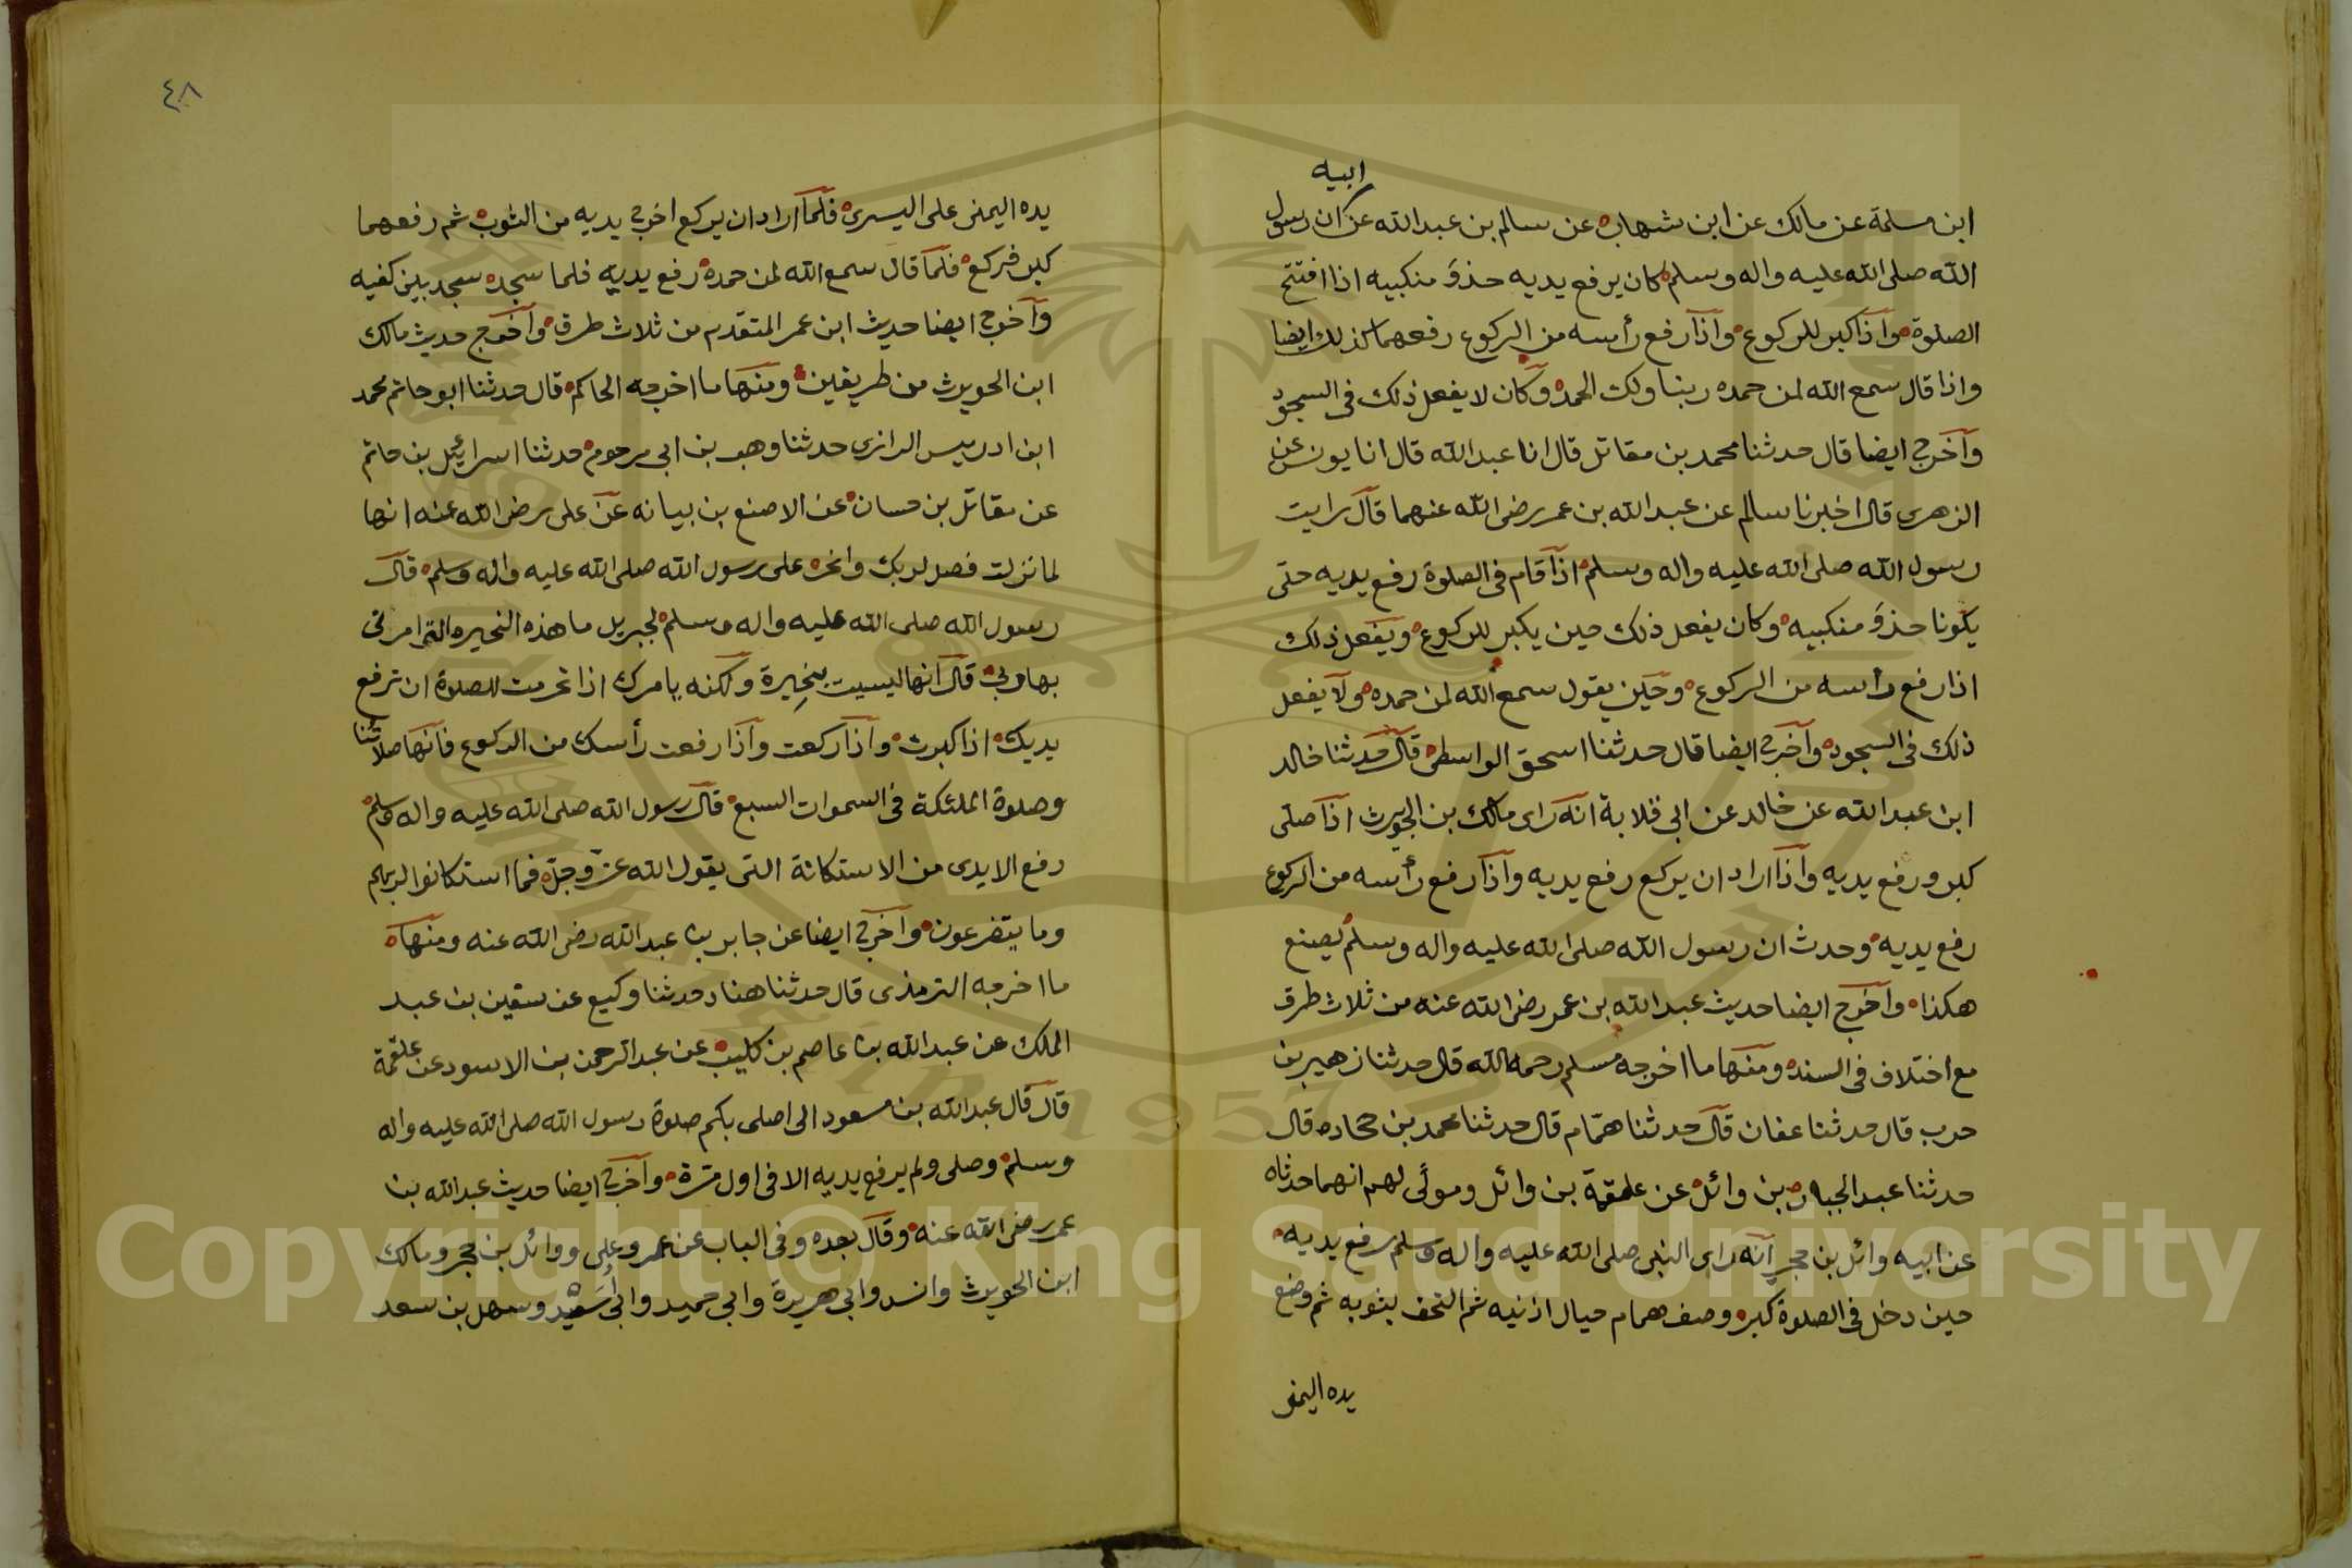 ابيه
ابن مسلمة عن مالك عن ابن شهاب عن سالم بن عبد الله عن ان رسول
الله صلى الله عليه واله وسلم كان يرفع يديه حذو منكبيه اذا افتتح
الصلوة واذا كبر للركوع واذا رفع رأسه من الركوع رفعهما كذلك ايضا
واذا قال سمع الله لمن حمده ربنا ولك الحمد وكان لا يفعل ذلك في السجود
وأخرج ايضا قال حدثنا محمد بن مقاتل قال انا عبد الله قال انا يونس عن
الزهري قال اخبرنا سالم عن عبد الله بن عمر رضى الله عنهما قال رايت
رسول الله صلى الله عليه واله وسلم اذا قام في الصلوة رفع يديه حتى
يكونا حذو منكبيه وكان يفعل ذلك حين يكبر للركوع ويفعل ذلك
اذا رفع رأسه من الركوع وحين يقول سمع الله لمن حمده ولا يفعل
ذلك في السجود وأخرج ايضا قال حدثنا اسحق الواسطى قال حدثنا خالد
ابن عبد الله عن خالد عن ابي قلابة انه راى مالك بن الحويرث اذا صلى
كبر ورفع يديه واذا اراد ان يركع رفع يديه واذا رفع رأسه من الركوع
رفع يديه وحدث ان رسول الله صلى الله عليه واله وسلم يصنع
هكذا وأخرج ايضا حديث عبد الله بن عمر رضى الله عنه من ثلاث طرق
مع اختلاف في السند ومنها ما اخرجه مسلم رحمه الله قال حدثنا زهير بن
حرب قال حدثنا عفان قال حدثنا همام قال حدثنا محمد بن جحاده قال
حدثنا عبد الجبار بن وائل عن علقمة بن وائل ومولى لهم انهما حدثاه
عن ابيه وائل بن حجر انه راى النبى صلى الله عليه واله وسلم رفع يديه
حين دخل في الصلوة كبر وصف همام حيال اذنيه ثم التحف بثوبه ثم وضع
يده اليمنى
٤٨
يده اليمنى على اليسرى فلما اراد ان يركع اخرج يديه من الثوب ثم رفعهما
كبر فركع فلما قال سمع الله لمن حمده رفع يديه فلما سجد سجد بين كفيه
وأخرج ايضا حديث ابن عمر المتقدم من ثلاث طرق وأخرج حديث مالك
ابن الحويرث من طريقين ومنها ما اخرجه الحاكم قال حدثنا ابو حاتم محمد
ابن ادريس الرازي حدثنا وهب بن ابي مرحوم حدثنا اسرائيل بن حاتم
عن مقاتل بن حسان عن الاصنع بن بيانه عن على رضى الله عنه انها
لما نزلت فصل لربك وانحر على رسول الله صلى الله عليه واله وسلم قال
رسول الله صلى الله عليه واله وسلم لجبريل ما هذه النحيره التى امرنى
بها ربي قال انها ليست بنحيرة ولكنه يامرك اذا تحرمت للصلوة ان ترفع
يديك اذا كبرت واذا ركعت واذا رفعت رأسك من الركوع فانها صلاتنا
وصلوة الملئكة في السموات السبع قال رسول الله صلى الله عليه واله وسلم
رفع الايدى من الاستكانة التى يقول الله عز وجل فما استكانوا لربهم
وما يتضرعون وأخرج ايضا عن جابر بن عبد الله رضى الله عنه ومنها
ما اخرجه الترمذى قال حدثنا هناد حدثنا وكيع عن سفين بن عبد
الملك عن عبد الله بن عاصم بن كليب عن عبد الرحمن بن الاسود عن علقمة
قال قال عبد الله بن مسعود الى اصلى بكم صلوة رسول الله صلى الله عليه واله
وسلم وصلى ولم يرفع يديه الا في اول مرة وأخرج ايضا حديث عبد الله بن
عمر رضى الله عنه وقال بعده وفي الباب عن عمر وعلى ووائل بن حجر ومالك
ابن الحويرث وانس وابي هريرة وابي حميد وابي أسيد وسهل بن سعد
Copyright © King Saud University
1957